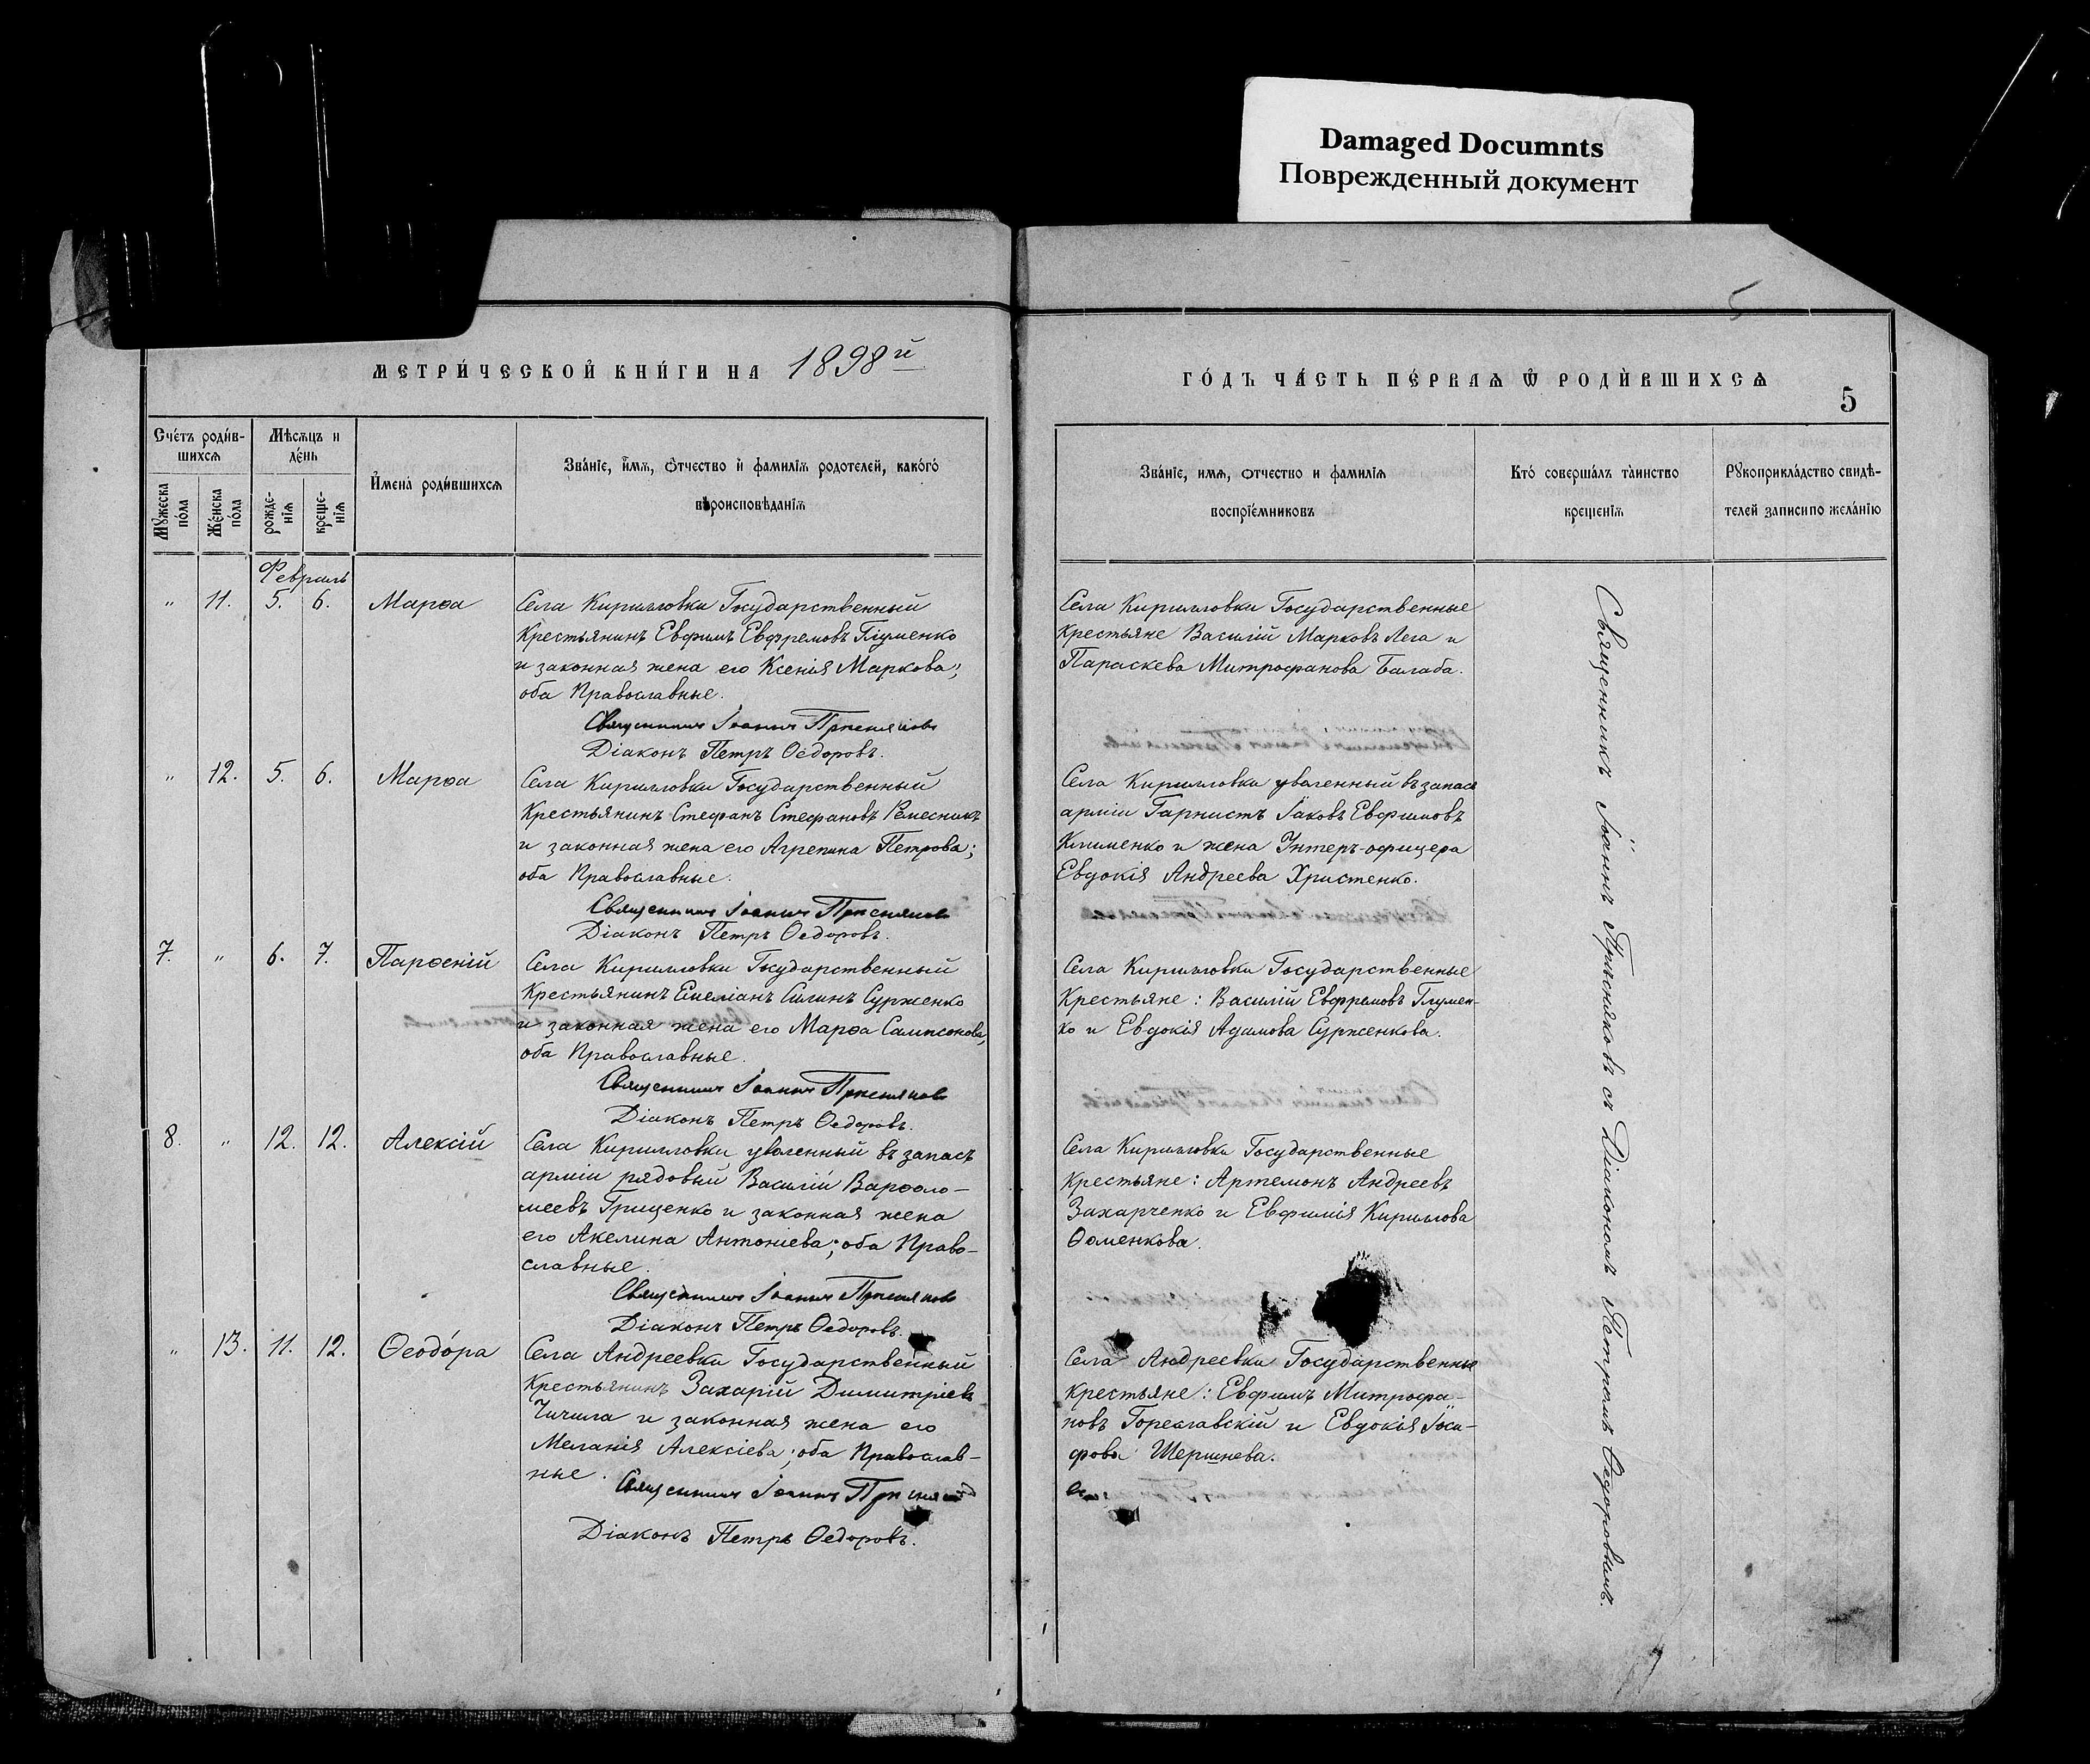 Damaged Documnts
Поврежденный документ
5
МЕТРИ́ЧЕСКОЙ КНИ́ГИ НА 1898й
ГО́ДЪ ЧА́СТЬ ПЕ́РВАѦ Ѿ РОДИ́ВШИХСѦ
5
Сче́тъ роди́в-
шихсѧ
Мѣсѧцъ и
де́нь
Мꙋжеска
по́ла
Же́нска
по́ла
рожде-
нїѧ
креще-
нїѧ
И҆мена̀ роди́вшихсѧ
Зва́нїе, и҆́мѧ, ѻ҆́тчество и҆ фамилїѧ родотелей, како́гѡ
вѣроисповѣданїѧ
Зва́нїе, имѧ, отчество и фамилїѧ
воспрїе́мниковъ
Кто́ соверша́лъ та̀инство
крещенїѧ
Рꙋкоприкла́дство свидѣ-
телей записи по жела́нїю
Февраль
" 11. 5. 6. Марѳа
Села Кирилловки Государственный
Крестьянинъ Евфимъ Евфремовъ Глуменко
и законная жена его Ксенія Маркова;
оба Православные.
Священникъ Іоаннъ Присняковъ
Діаконъ Петръ Ѳедоровъ.
Села Кирилловки Государственные
Крестьяне Василій Марковъ Лега и
Параскева Митрофанова Балаба.
" 12. 5. 6. Марѳа
Села Кирилловки Государственный
Крестьянинъ Стефанъ Стефановъ Ремесникъ
и законная жена его Агрепина Петрова;
оба Православные.
Священникъ Іоаннъ Присняковъ
Діаконъ Петръ Ѳедоровъ.
Села Кирилловки уволенный въ запасъ
арміи Гарнистъ Іаковъ Евфимовъ
Клименко и жена Унтеръ-офицера
Евдокія Андреева Христенко.
7. " 6. 7. Парѳеній
Села Кирилловки Государственный
Крестьянинъ Емеліанъ Силинъ Сурженко
и законная жена его Марѳа Сампсонова,
оба Православные.
Священникъ Іоаннъ Присняковъ
Діаконъ Петръ Ѳедоровъ.
Села Кирилловки Государственные
Крестьяне: Василій Евфремовъ Глумен-
ко и Евдокія Адамова Сурженкова.
8. " 12. 12. Алексій
Села Кирилловки уволенный въ запасъ
арміи рядовый Василій Варѳоло-
меевъ Грищенко и законная жена
его Акелина Антоніева; оба Право-
славные.
Священникъ Іоаннъ Присняковъ
Діаконъ Петръ Ѳедоровъ.
Села Кирилловки Государственные
Крестьяне: Артемонъ Андреевъ
Захарченко и Евфимія Кириллова
Ѳоменкова.
" 13. 11. 12. Ѳеодо́ра
Села Андреевки Государственный
Крестьянинъ Захарій Димитріевъ
Чичила и законная жена его
Меланія Алексіева; оба Православ-
ные.
Священникъ Іоаннъ
Діаконъ Петръ Ѳедоровъ.
Села Андреевки Государственные
Крестьяне: Евфимъ Митрофа-
новъ Гореславскій и Евдокія Іоси-
фова Шершнева.
Священникъ Іоаннъ Присняковъ съ Діакономъ Петромъ Ѳедоровымъ.